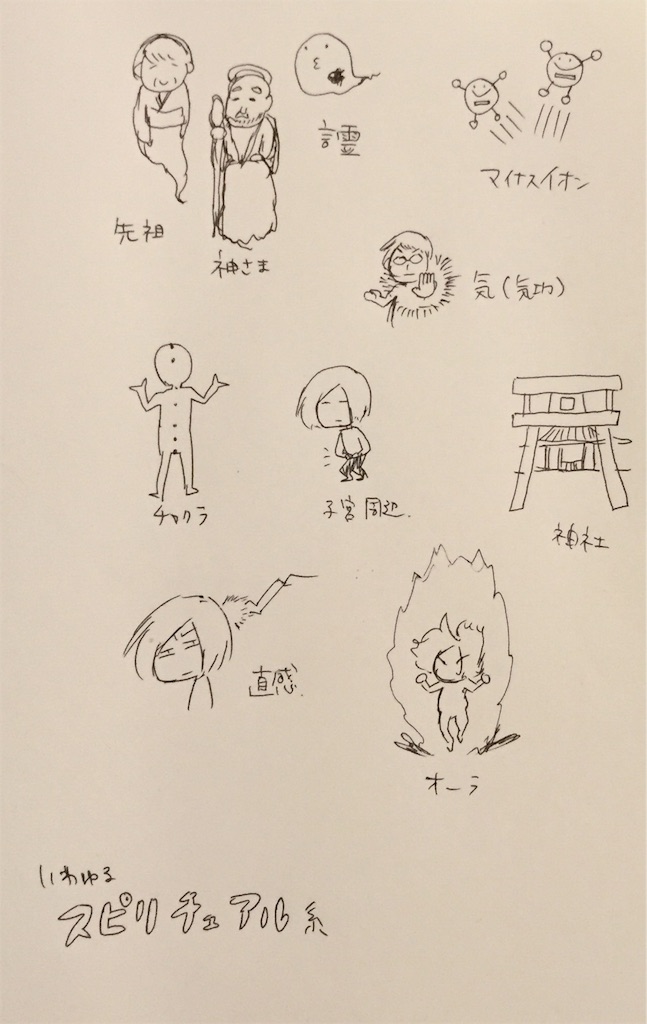 先祖
神さま
言霊
マイナスイオン
気(気功)
チャクラ
子宮周辺.
神社
直感.
オーラ
いわゆる
スピリチュアル系